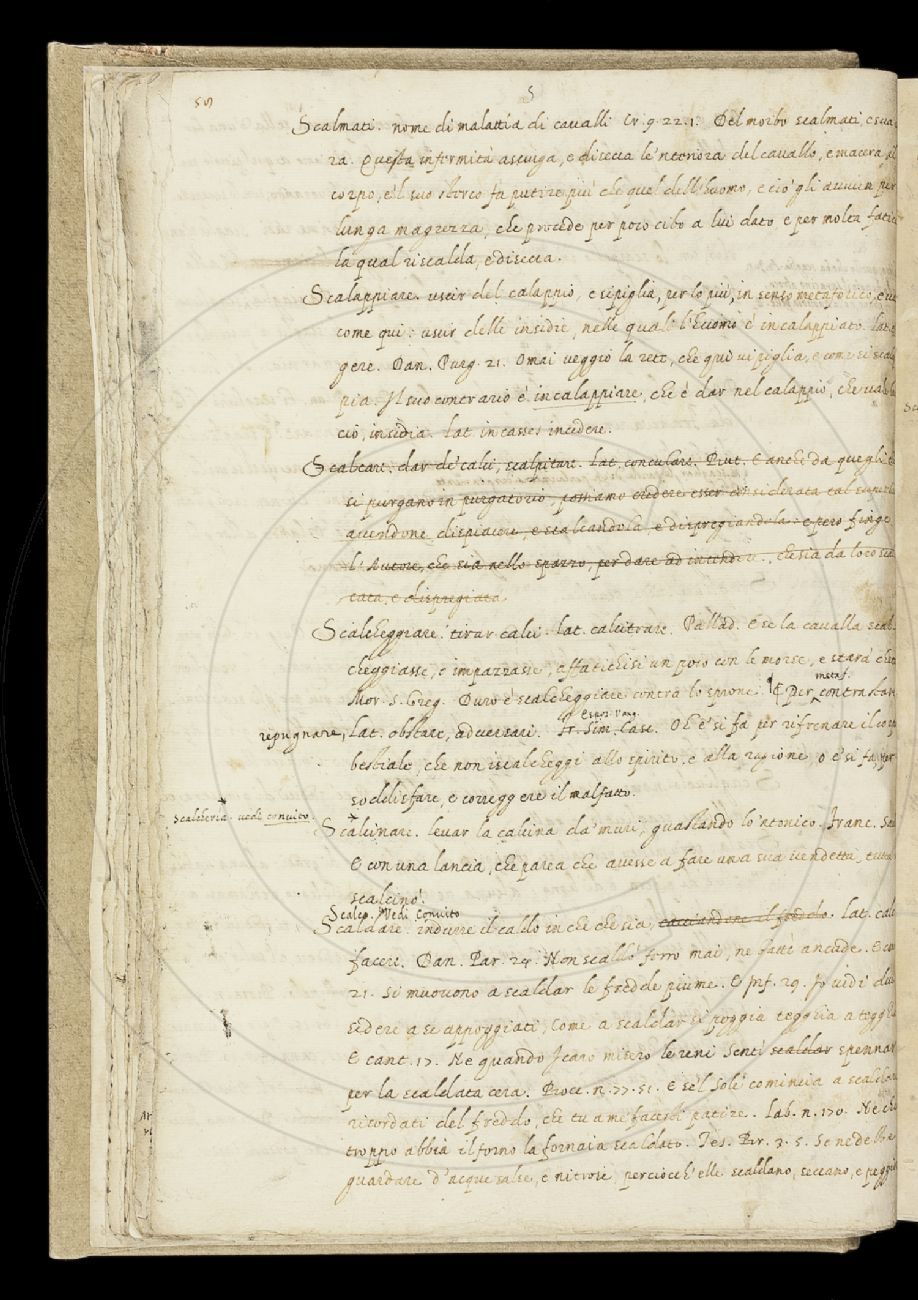 59
5
Scalmati. nome di malattia di caualli Cr. 9. 22. 1. Del morbo scalmati, e sua
ra. Questa infermità asciuga, e disecca le 'nteriora del cauallo, e macera il
corpo, e 'l suo sterco fa putire più che quel dell'huomo, e ciò gli auuien per
lunga magrezza, che procede per poco cibo a lui dato, e per molta fatic
la qual riscalda, e disecca.
Scalappiare. uscir del calappio, e si piglia, per lo più, in senso metaforico, e ua
come qui: uscir delle insidie, nelle quali l'huomo è incalappiato. Lat.
gere. Dan. Purg. 21. Omai ueggio la rete, che qui ui piglia, e come si scala
pia. Il suo contrario è incalappiare, che è dar nel calappio, che ual
ciò, insidia. Lat. in casses incidere.
Scalcare. dar de' calci, scalpitare. Lat. conculcare. But. E anche da quegli
si purgano in purgatorio, possiamo credere esser considerata tal superb
auendone dispiacere, e scalcandola, e dispregiandola: e però finge
l'Autore, che sia nello spazzo, per dare ad intendere, che sia da loro scal
cata, e dispregiata
Scalcheggiare. tirar calci. Lat. calcitrare. Pallad. E se la caualla scal
cheggiasse, e impazzasse, affatichisi un poco con le morse, e starà chet
metaf.
Mor. S. Greg. Duro è scalcheggiare contra lo sprone. Per contrastare
Espos. Vang.
repugnare, Lat. obstare, aduersari. Fr. Sim. Casc. Ch'e' si fa per rifrenare il corp
bestiale, che non iscalcheggi allo spirito, e alla ragione, o e' si fa per
so delisfare, e correggere il malfatto.
Scalcheria uedi conuito.
Scalcinare. leuar la calcina da' muri, guastando lo 'ntonico. Franc. Sac
E con una lancia, che parea che auesse a fare una sua uendetta, tutta
scalcinò.
Scalco. Vedi Conuito
Scaldare. indurre il caldo in che che sia, cacciandone il freddo. Lat. cale
facere. Dan. Par. 24. Non scaldò ferro mai, ne battè ancude. E
21. Si muouono a scaldar le fredde piume. E Inf. 29. Io uidi du
sedere a se appoggiati, Come a scaldar si poggia tegghia a teggh
E cant. 17. Ne quando Icaro misero le reni Sentì scaldar spennar
per la scaldata cera. Bocc. n. 77. 51. E se 'l sole comincia a scaldar
ricordati del freddo, che tu a me facesti patire. Lab. n. 170. Nè ch
troppo abbia il forno la fornaia scaldato. Tes. Br. 3. 5. Se ne debb
guardare d'acque salse, e nitrose, perciocch'elle scaldano, seccano, e peggio